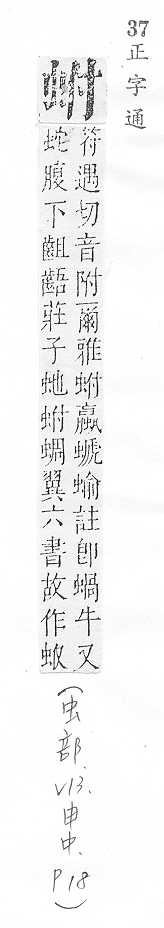 37
正字通
蚹
符遇切音附爾雅蚹蠃螔蝓註卽蝸牛又
蛇腹下齟齬莊子虵蚹蜩翼六書故作䖬
(虫部. V13. 申中. P18)